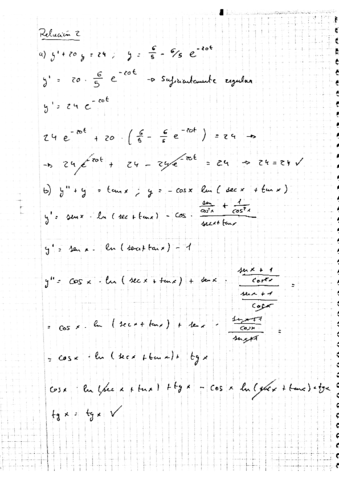 Relación 2
a) y' + 20 y = 24 ; y = 6/5 - 6/5 e^-20t
y' = 20 · 6/5 e^-20t → Suficientemente regular
y' = 24 e^-20t
24 e^-20t + 20 · (6/5 - 6/5 e^-20t) = 24 →
→ 24 e^-20t + 24 - 24 e^-20t = 24 → 24 = 24 ✓
b) y'' + y = tan x ; y = - cos x ln (sec x + tan x)
y' = sen x · ln (sec + tan x) - cos · (sen/cos²x + 1/cos²x)/(sec x + tan x)
y' = sen x · ln (sec x + tan x) - 1
y'' = cos x · ln (sec x + tan x) + sen x · ((sen x + 1)/cos²x)/((sen x + 1)/cos x) =
= cos x · ln (sec x + tan x) + sen x · ((sen x + 1)/cos x)/(sen x + 1) =
= cos x · ln (sec x + tan x) + tg x
cos x · ln (sec x + tan x) + tg x - cos x ln (sec x + tan x) = tg x
tg x = tg x ✓